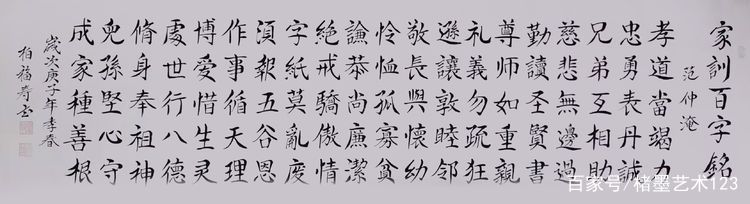 家訓百字銘
范仲淹
孝道當竭力
忠勇表丹誠
兄弟互相助
慈悲無邊過
勤讀圣賢書
尊師如重親
礼義勿疏狂
遜讓敦睦邻
敬長與懷幼
怜恤孤寡貧
謙恭尚廉潔
絕戒驕傲情
字紙莫亂廢
湏報五谷恩
作事循天理
博愛惜生灵
處世行八德
脩身奉祖神
兒孫堅心守
成家種善根
歲次庚子年季春
柏福寿书
百家号/楮墨艺术123